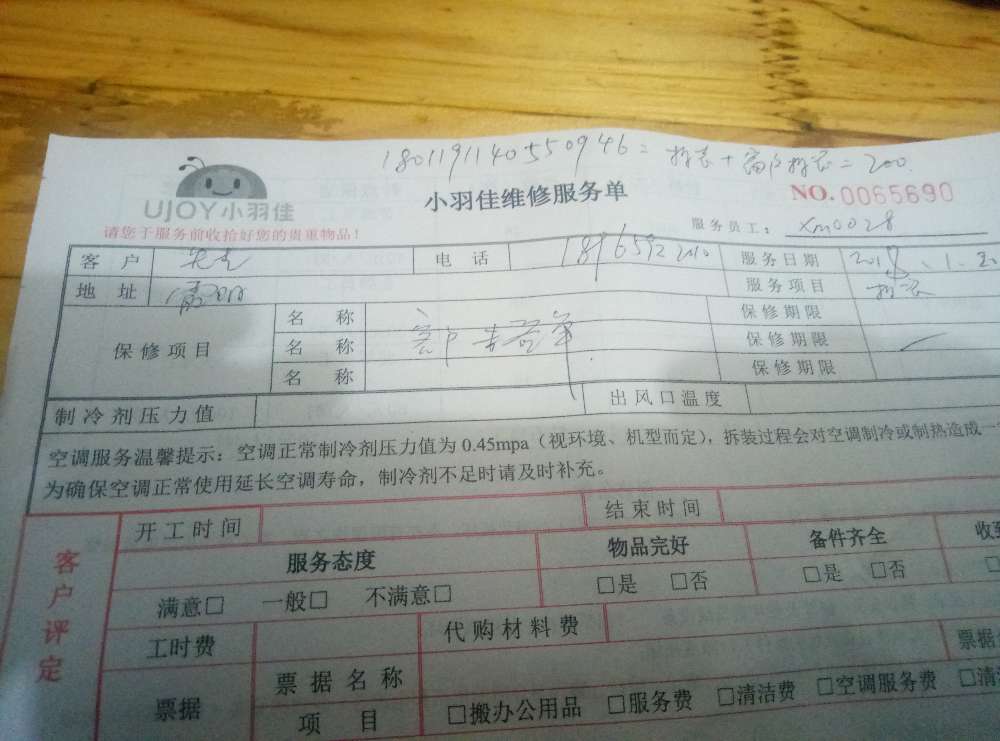 180119114055094 6= 拆装+窗户拆装=200.
UJOY小羽佳
小羽佳维修服务单
NO.0065690
请您于服务前收拾好您的贵重物品!
服务员工: xm0028
客户 电话 服务日期 2018.1.20
地址 服务项目 拆装
保修项目 名称 保修期限
名称 客户 保修期限
名称 保修期限
制冷剂压力值 出风口温度
空调服务温馨提示:空调正常制冷剂压力值为0.45mpa(视环境、机型而定),拆装过程会对空调制冷或制热造成一
为确保空调正常使用延长空调寿命,制冷剂不足时请及时补充。
客户评定
开工时间 结束时间
服务态度 物品完好 备件齐全 收到
满意□ 一般□ 不满意□ □是 □否 □是 □否
工时费 代购材料费
票据 票据名称 票据
项目 □搬办公用品 □服务费 □清洁费 □空调服务费 □清